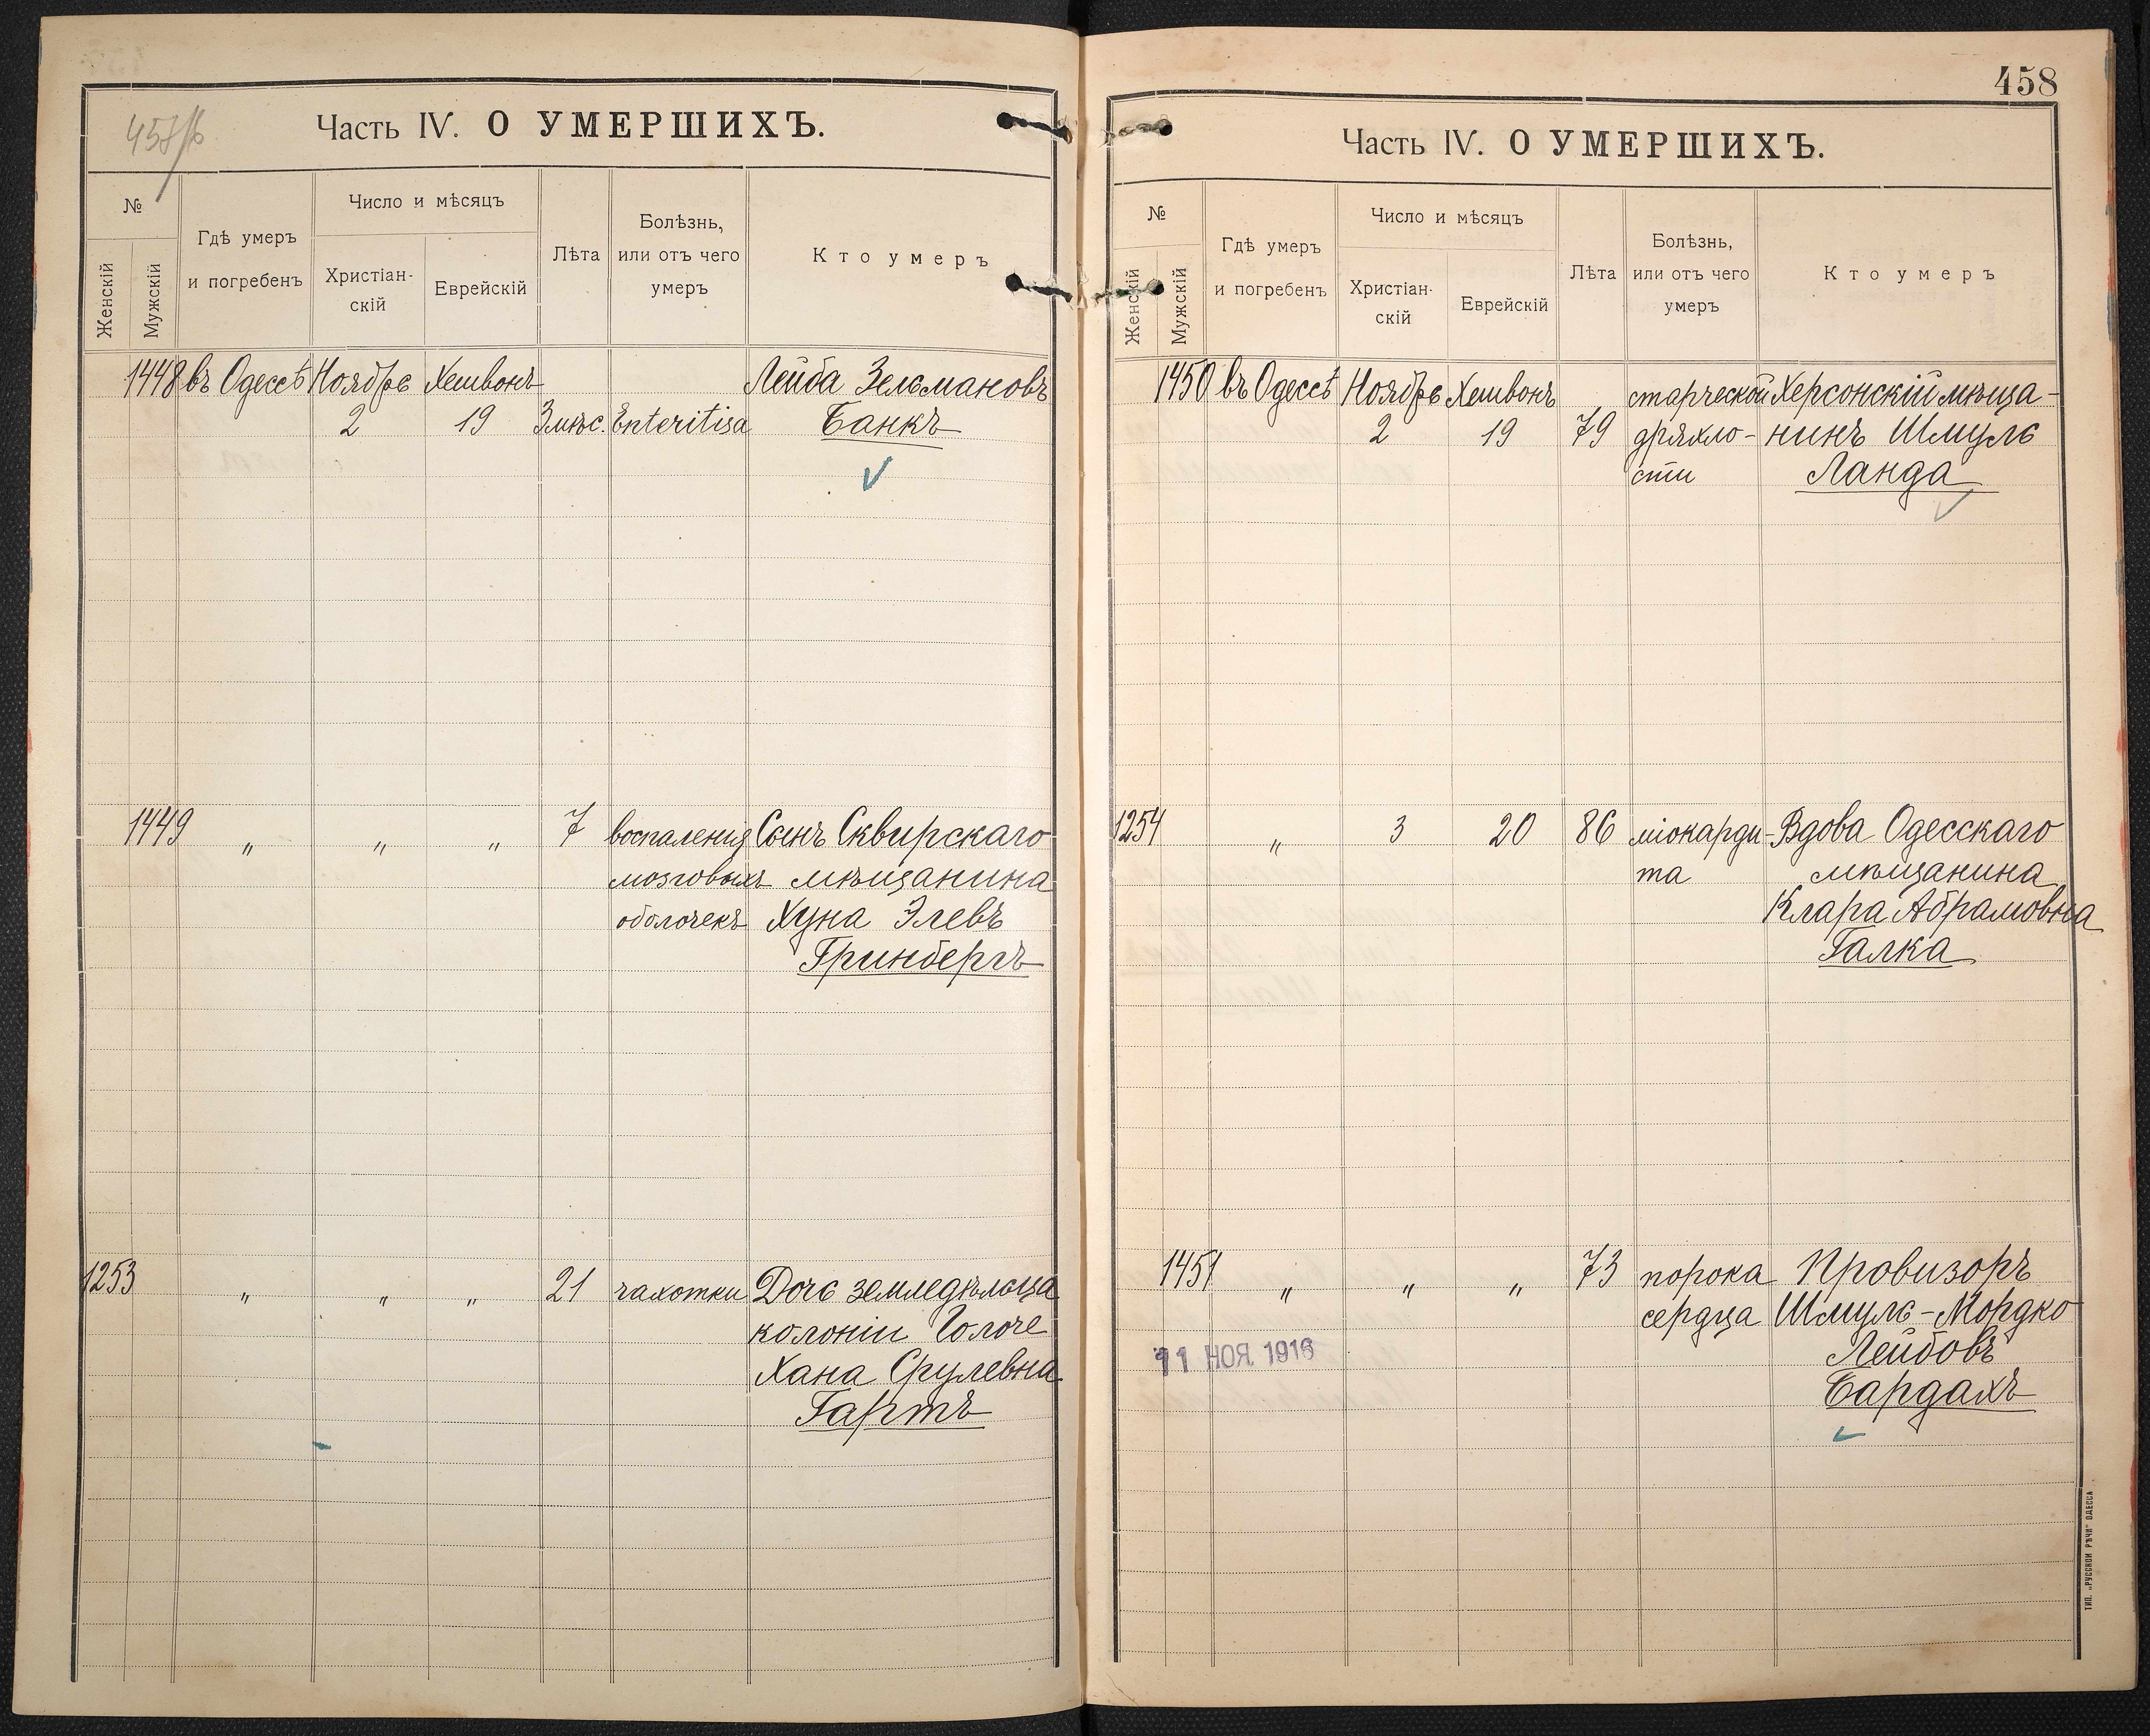 457/б
Часть IV. О УМЕРШИХЪ.
№
Женскій
Мужскій
Гдѣ умеръ
и погребенъ
Число и мѣсяцъ
Христіан-
скій
Еврейскій
Лѣта
Болѣзнь,
или отъ чего
умеръ
Кто умеръ
1448 въ Одессѣ Ноябрь Хешвонъ Лейба Зельмановъ
2 19 3 мѣс. Enteritisa Банкъ
1449 " " " 7 воспаленія Сынъ Сквирскаго
мозговыхъ мѣщанина
оболочекъ Хуна Элевъ
Гринбергъ
1253 " " " 21 чахотки Дочь земледѣльца
колоніи
Хана Срулевна
Гартъ
458
Часть IV. О УМЕРШИХЪ.
№
Женскій
Мужскій
Гдѣ умеръ
и погребенъ
Число и мѣсяцъ
Христіан-
скій
Еврейскій
Лѣта
Болѣзнь,
или отъ чего
умеръ
Кто умеръ
1450 въ Одессѣ Ноябрь Хешвонъ старческой Херсонскій мѣща-
2 19 79 дряхло- нинъ Шмуль
сти Ланда
1254 " 3 20 86 міокарди- Вдова Одесскаго
та мѣщанина
Клара Абрамовна
Галка
1451 " " " 73 порока Провизоръ
сердца Шмуль-Мордко
11 НОЯ 1916 Лейбовъ
Бардахъ
ТИП. „РУССКОЙ РѢЧИ" ОДЕССА